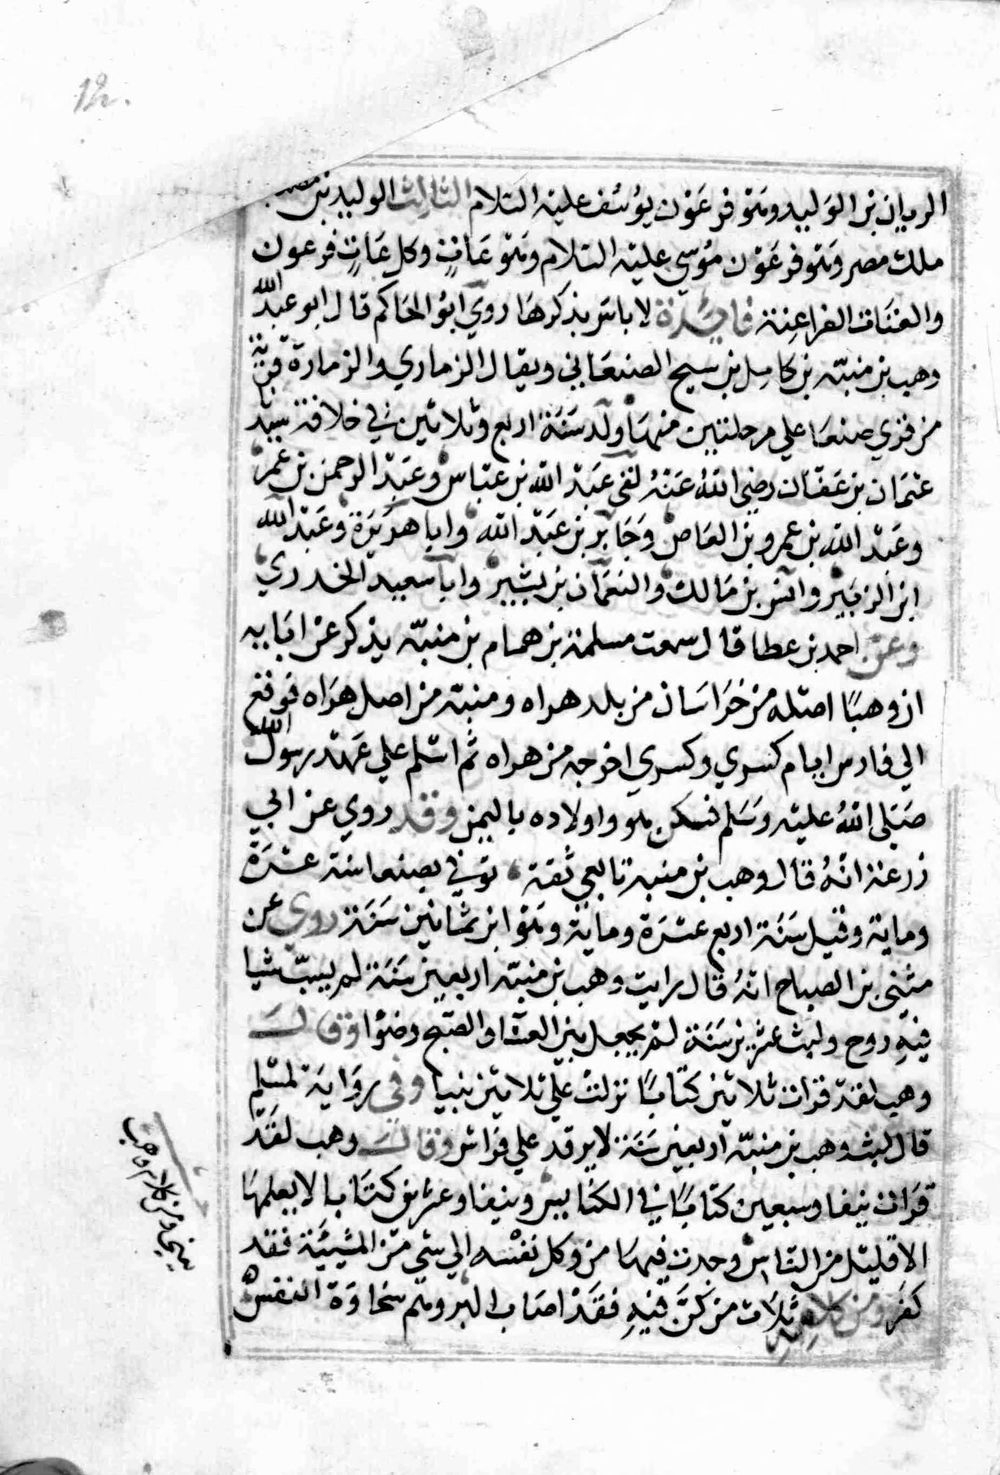 12.
الريان بن الوليد وهو فرعون يوسف عليه السلام الثالث الوليد بن مصعب
ملك مصر وهو فرعون موسى عليه السلام وهو عاتٍ وكل عاتٍ فرعون
والعتاة الفراعنة فايدة لا باس بذكرها روي ابو الحاكم قال ابو عبد الله
وهب بن منبّه بن كامل بن سيج الصنعاني ويقال الزماري والزمارة قرية
من قري صنعا علي مرحلتين منها ولد سنة اربع وثلاثين في خلافة سيد
عثمان بن عفّان رضي الله عنه لقي عبد الله بن عباس وعبد الرحمن بن عمر
وعبد الله بن عمرو بن العاص وجابر بن عبد الله وابا هريرة وعبد الله
ابن الزبير وانس بن مالك والنعمان بن بشير وابا سعيد الخدري
وعن احمد بن عطا قال سمعت مسلمة بن همام بن منبّه يذكر عن ابايه
ان وهبًا اصله من خراسان من بلد هراه ومنبّه من اصل هراه فوقع
الي فارس ايام كسري وكسري اخرجه من هراه ثم اسلم علي عهد رسول الله
صلي الله عليه وسلم فسكن هو واولاده باليمن وقد روي عن ابي
زرعة انه قال وهب بن منبه تابعي ثقة توفي بصنعا سنة عشرة
وماية وقيل سنة اربع عشرة وماية وهو ابن ثمانين سنة روى عن
مثني بن الصباح انه قال رايت وهب بن منبّه اربعين سنة لم يسبّ شيا
فيه روح ولبث عشرين سنة لم يجعل بين العشا والصبح وضوًا وقال
وهب لقد قرات ثلاثين كتابًا نزلت علي ثلاثين نبيا وفي رواية لمسلم
قال لبث وهب بن منبّه اربعين سنة لا يرقد علي فراش وقال وهب لقد
قرات نيفا وسبعين كتابًا في الكنايس ونيفا وعشرين كتابا لا يعلمها
الا قليل من الناس وجدت فيها من وكل نفسه الي شي من المشيّة فقد
كفر ومن كلامه ثلاث من كنّ فيه فقد اصاب البر وهم سخاوة النفس
ومن كلام وهب